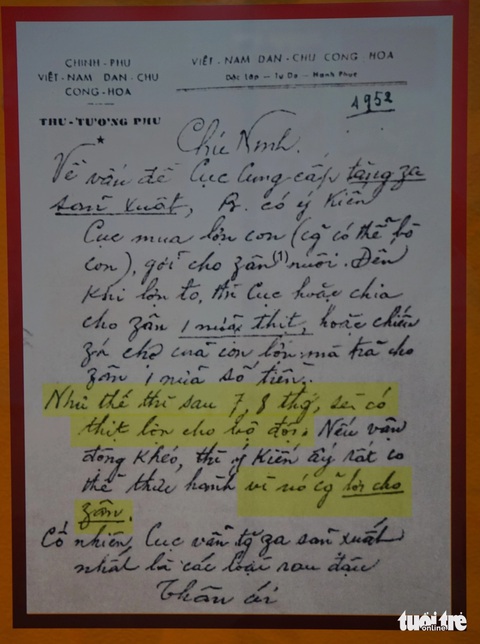 CHINH-PHU
VIÊT-NAM DAN-CHU
CONG-HOA
THU-TUONG PHU
VIÊT-NAM DAN-CHU CONG-HOA
Dôc Lâp — Tu Do — Hanh Phuc
1952
Chú Ninh.
Về vấn đề Cục Cung cấp tăng za
sản xuất, B. có ý kiến
Cục mua lợn con (cg̃ có thể bò
con), gởi cho zân (1) nuôi. Đến
khi lợn to, thì Cục hoặc chia
cho zân 1 nửa thịt, hoặc chiếu
zá chợ của con lợn mà trả cho
zân 1 nửa số tiền.
Như thế thì sau 7, 8 thg, sẽ có
thịt lợn cho bộ đội. Nếu vận
động khéo, thì ý kiến ấy rất có
thể thực hành vì nó cg̃ lợi cho
zân.
Cố nhiên, Cục vẫn tg za sản xuất
nhất là các loại rau đậu
Thân ái
tuổi trẻ
online